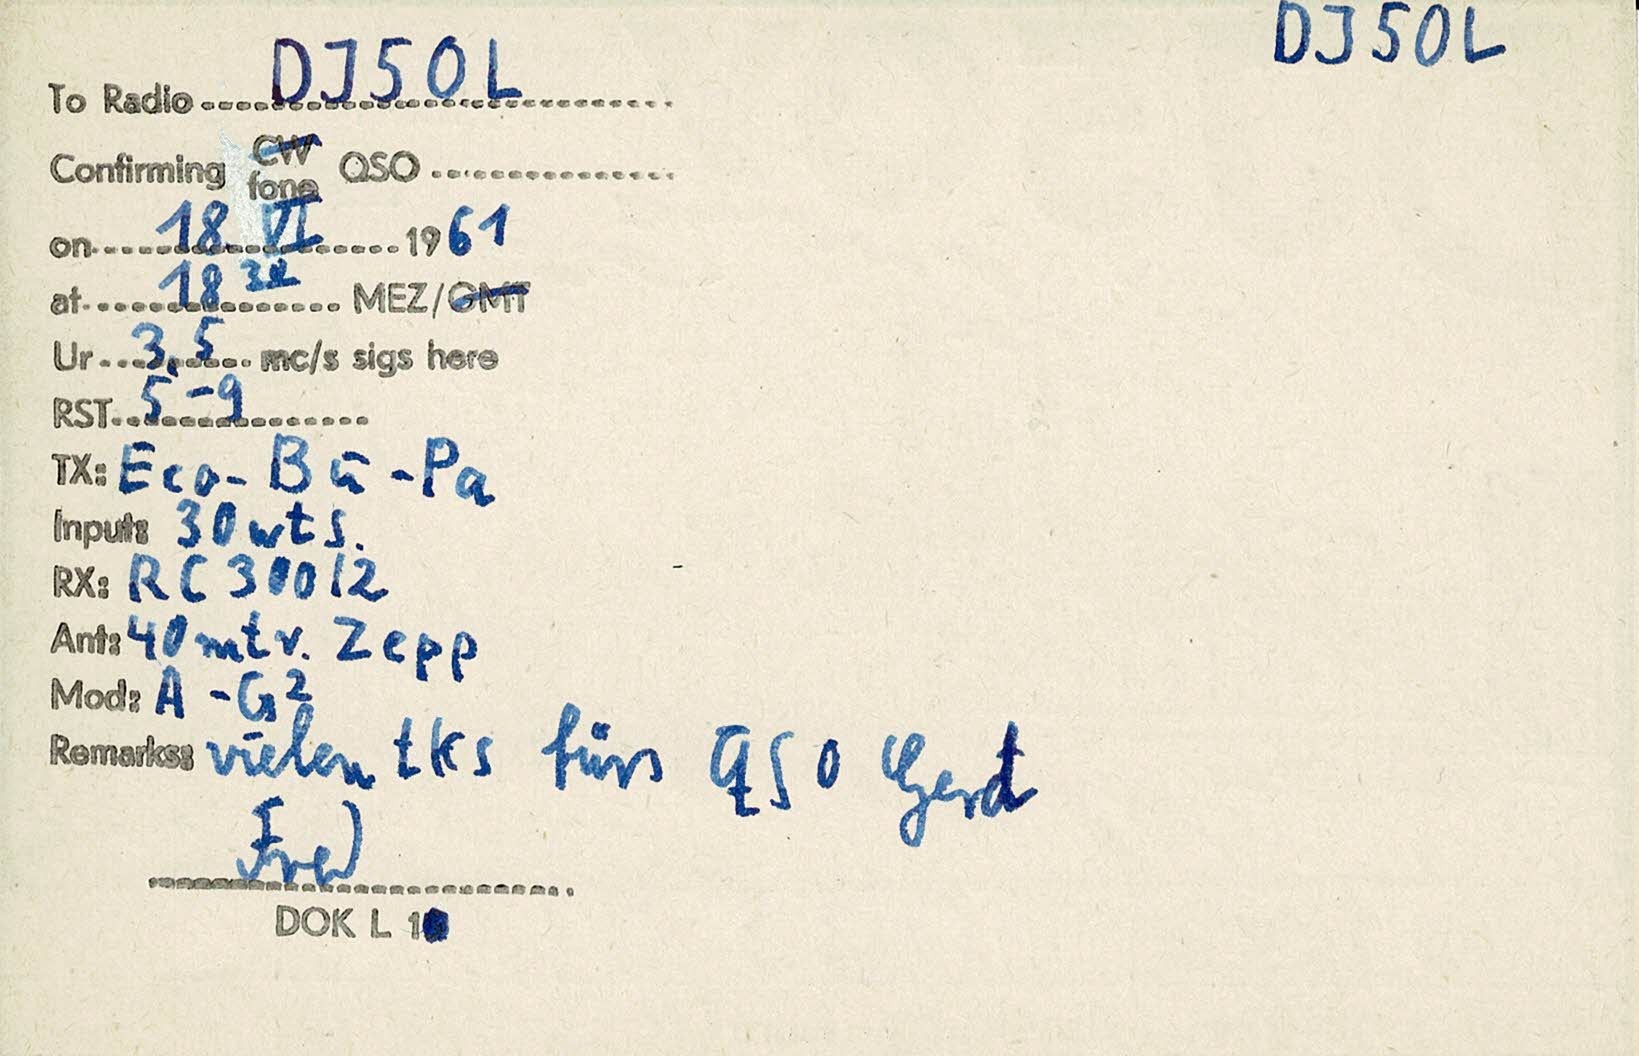 DJ5OL
To Radio DJ5OL
Confirming CW fone QSO
on 18. VI 1961
at 18 MEZ/GMT
Ur 3,5 mc/s sigs here
RST 5-9
TX: Eco-Bu-Pa
Input: 30 wts.
RX: RC 300/2
Ant: 40 mtr. Zepp
Mod: A-G2
Remarks: vielen tks fürs QSO Gerd
Fred
DOK L